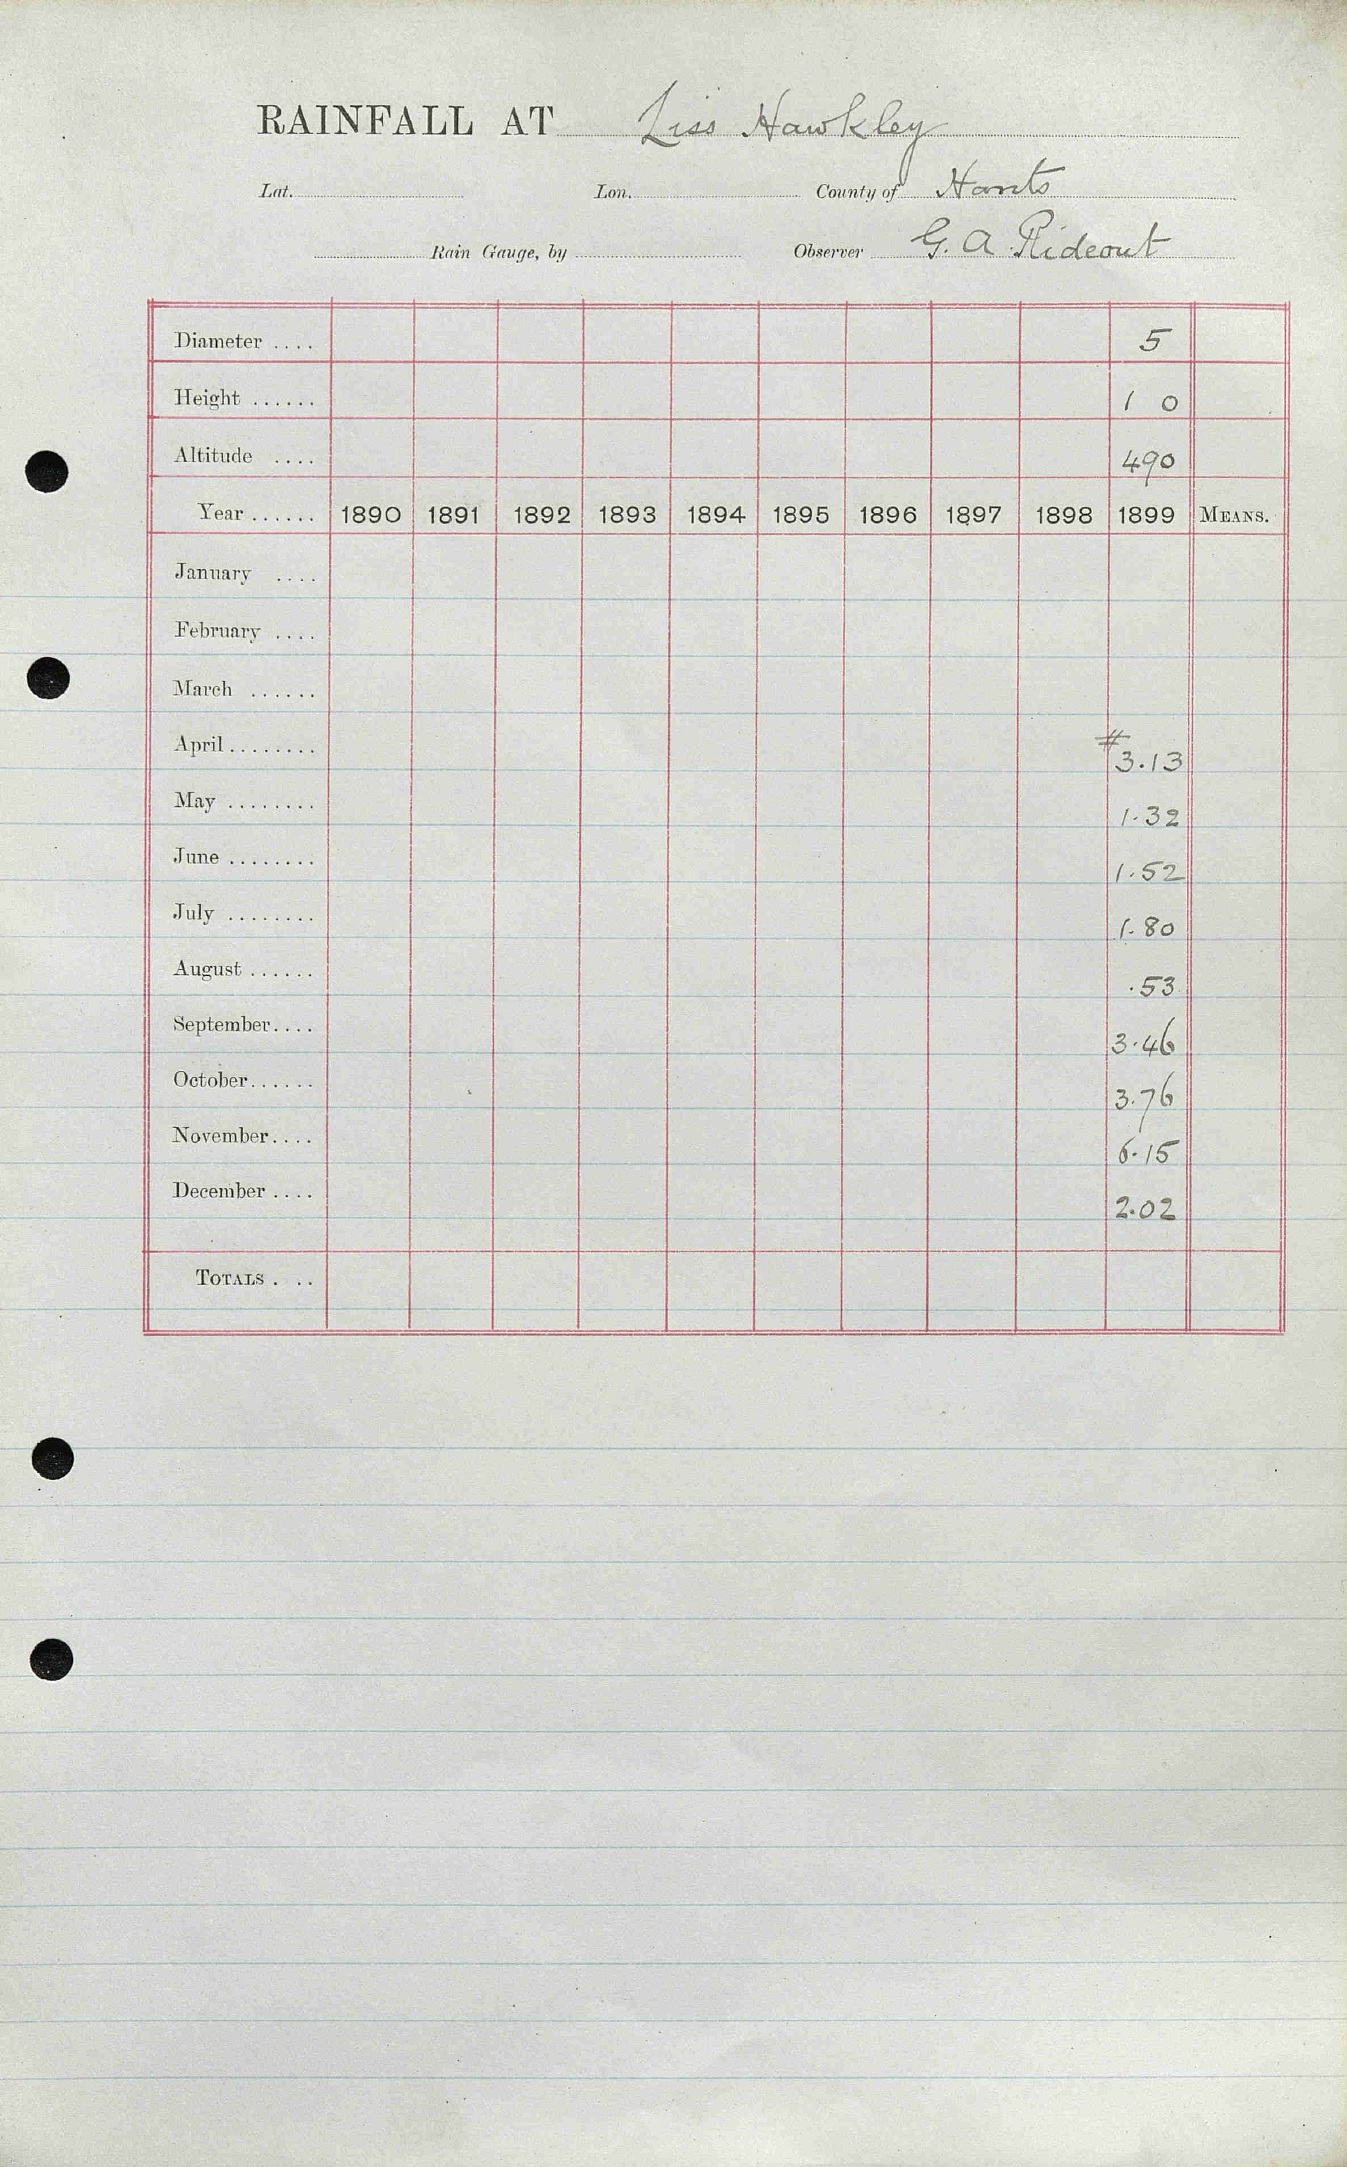 RAINFALL AT Liss Hawkley
Lat. Lon. County of Hants
Rain Gauge, by Observer G. A. Rideout
Diameter .... 5
Height ...... 1 0
Altitude .... 490
Year ...... 1890 1891 1892 1893 1894 1895 1896 1897 1898 1899 MEANS.
January ....
February ....
March ......
April ........ # 3.13
May ........ 1.32
June ........ 1.52
July ........ 1.80
August ...... .53
September.... 3.46
October...... 3.76
November.... 6.15
December .... 2.02
TOTALS . ..